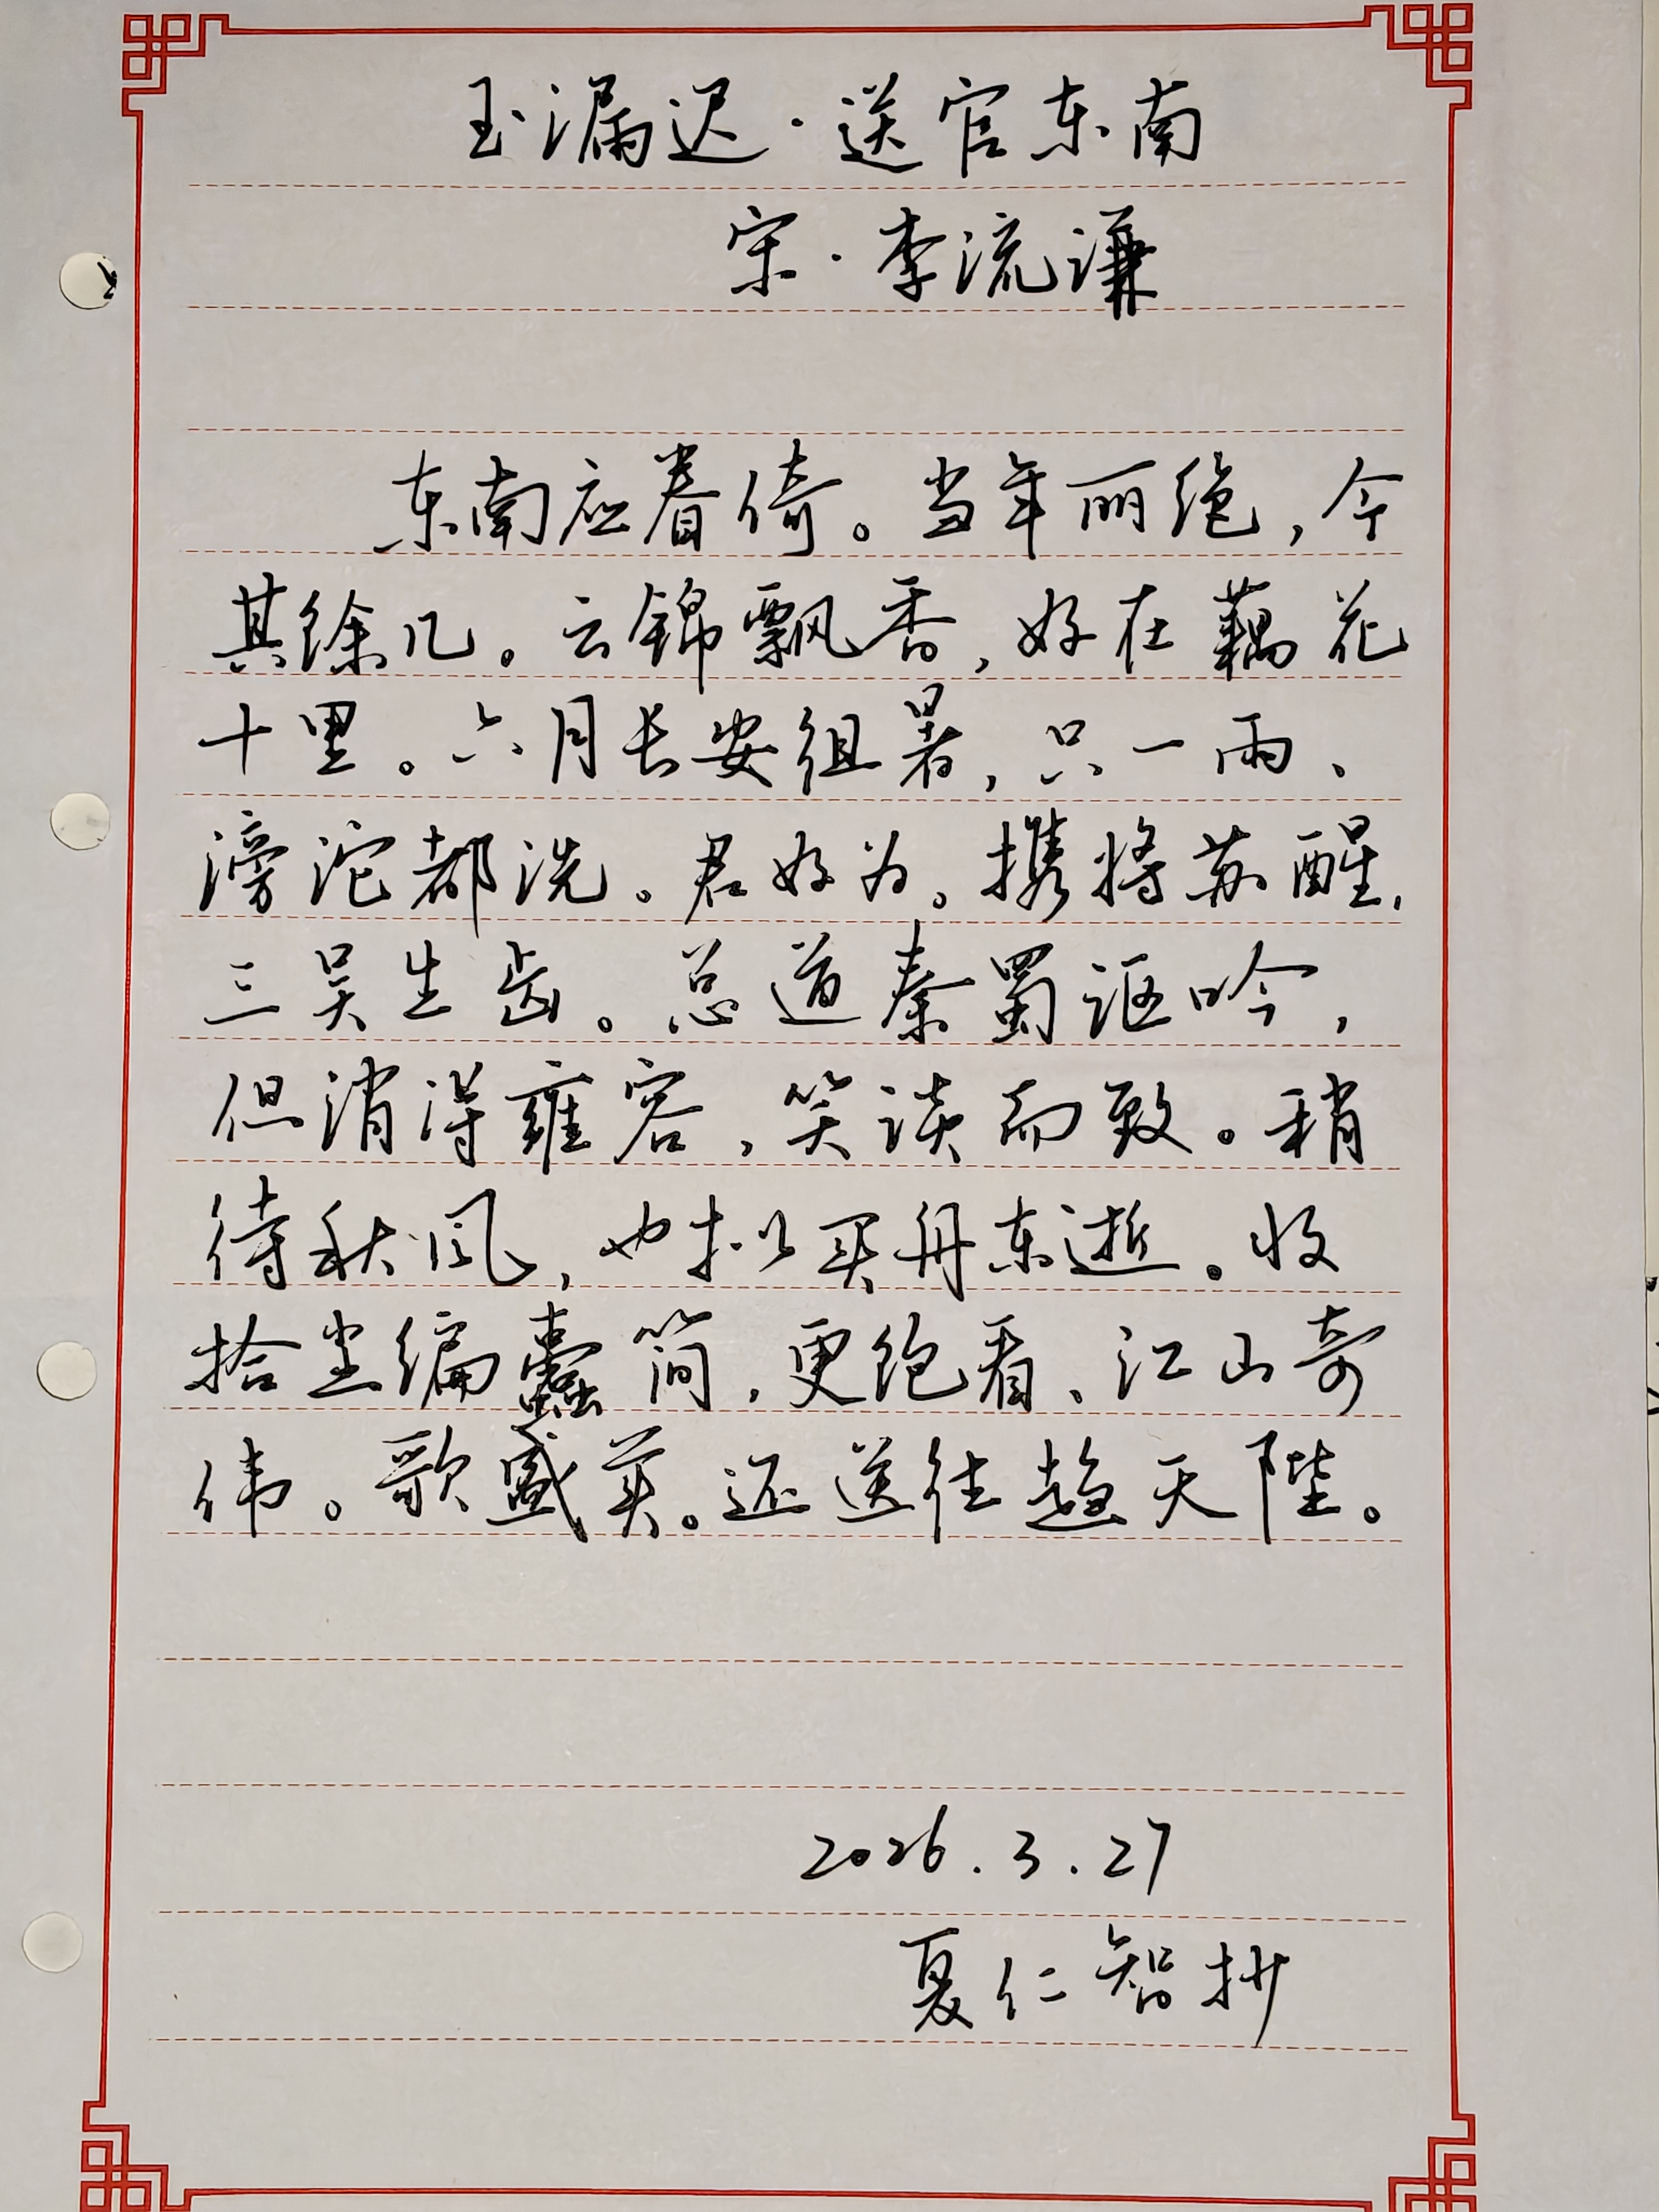 玉漏迟·送官东南
宋·李流谦
东南应眷倚。当年丽绝，今
其馀几。云锦飘香，好在藕花
十里。六月长安徂暑，只一雨、
滂沱都洗。君好为。携将苏醒，
三吴生齿。总道秦蜀讴吟，
但消得雍容，笑谈而致。稍
待秋风，也拟买舟东逝。收
拾尘编蠹简，更饱看、江山奇
伟。歌盛美。还送往趋天陛。
2026.3.27
夏仁智抄